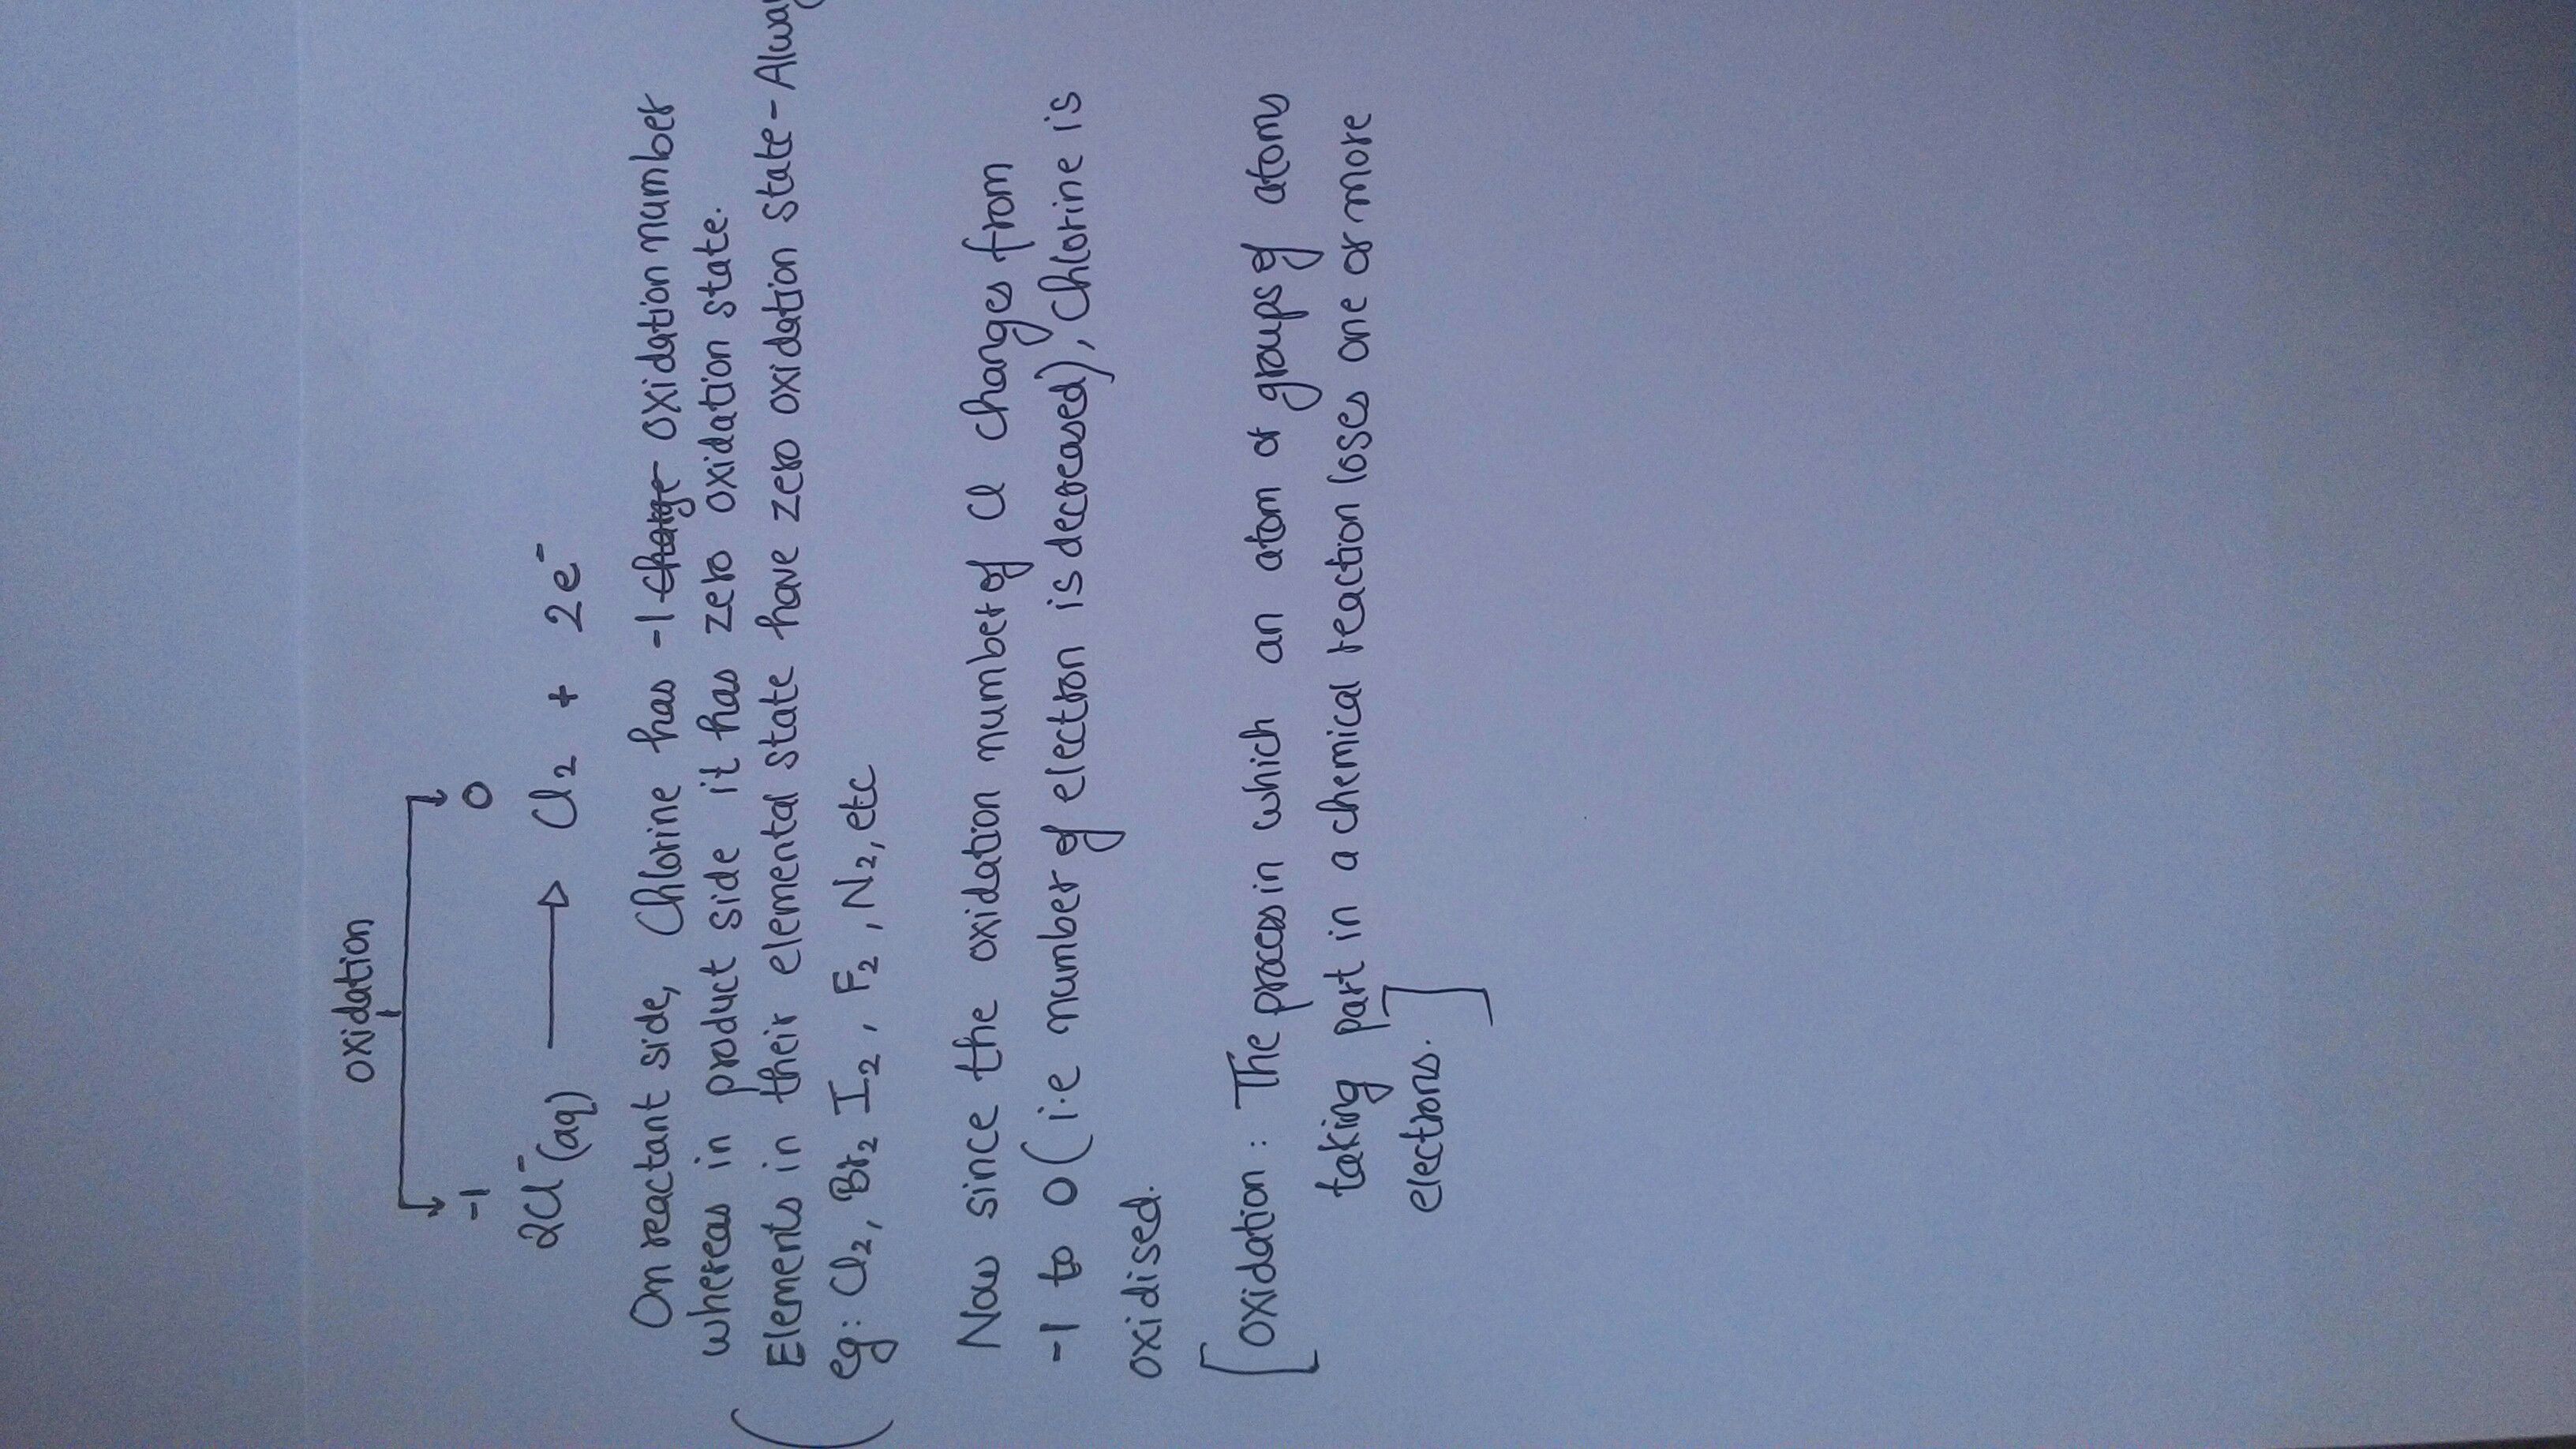 oxidation
-1 0
2Cl⁻(aq) ⟶ Cl₂ + 2e⁻
On reactant side, Chlorine has -1 charge oxidation number
whereas in product side it has zero oxidation state.
(Elements in their elemental state have zero oxidation state - Alway
eg: Cl₂, Br₂ I₂, F₂, N₂, etc
Now since the oxidation number of Cl changes from
-1 to 0 (i.e number of electron is decreased), Chlorine is
oxidised.
[Oxidation: The process in which an atom or groups of atoms
taking part in a chemical reaction loses one or more
electrons.]